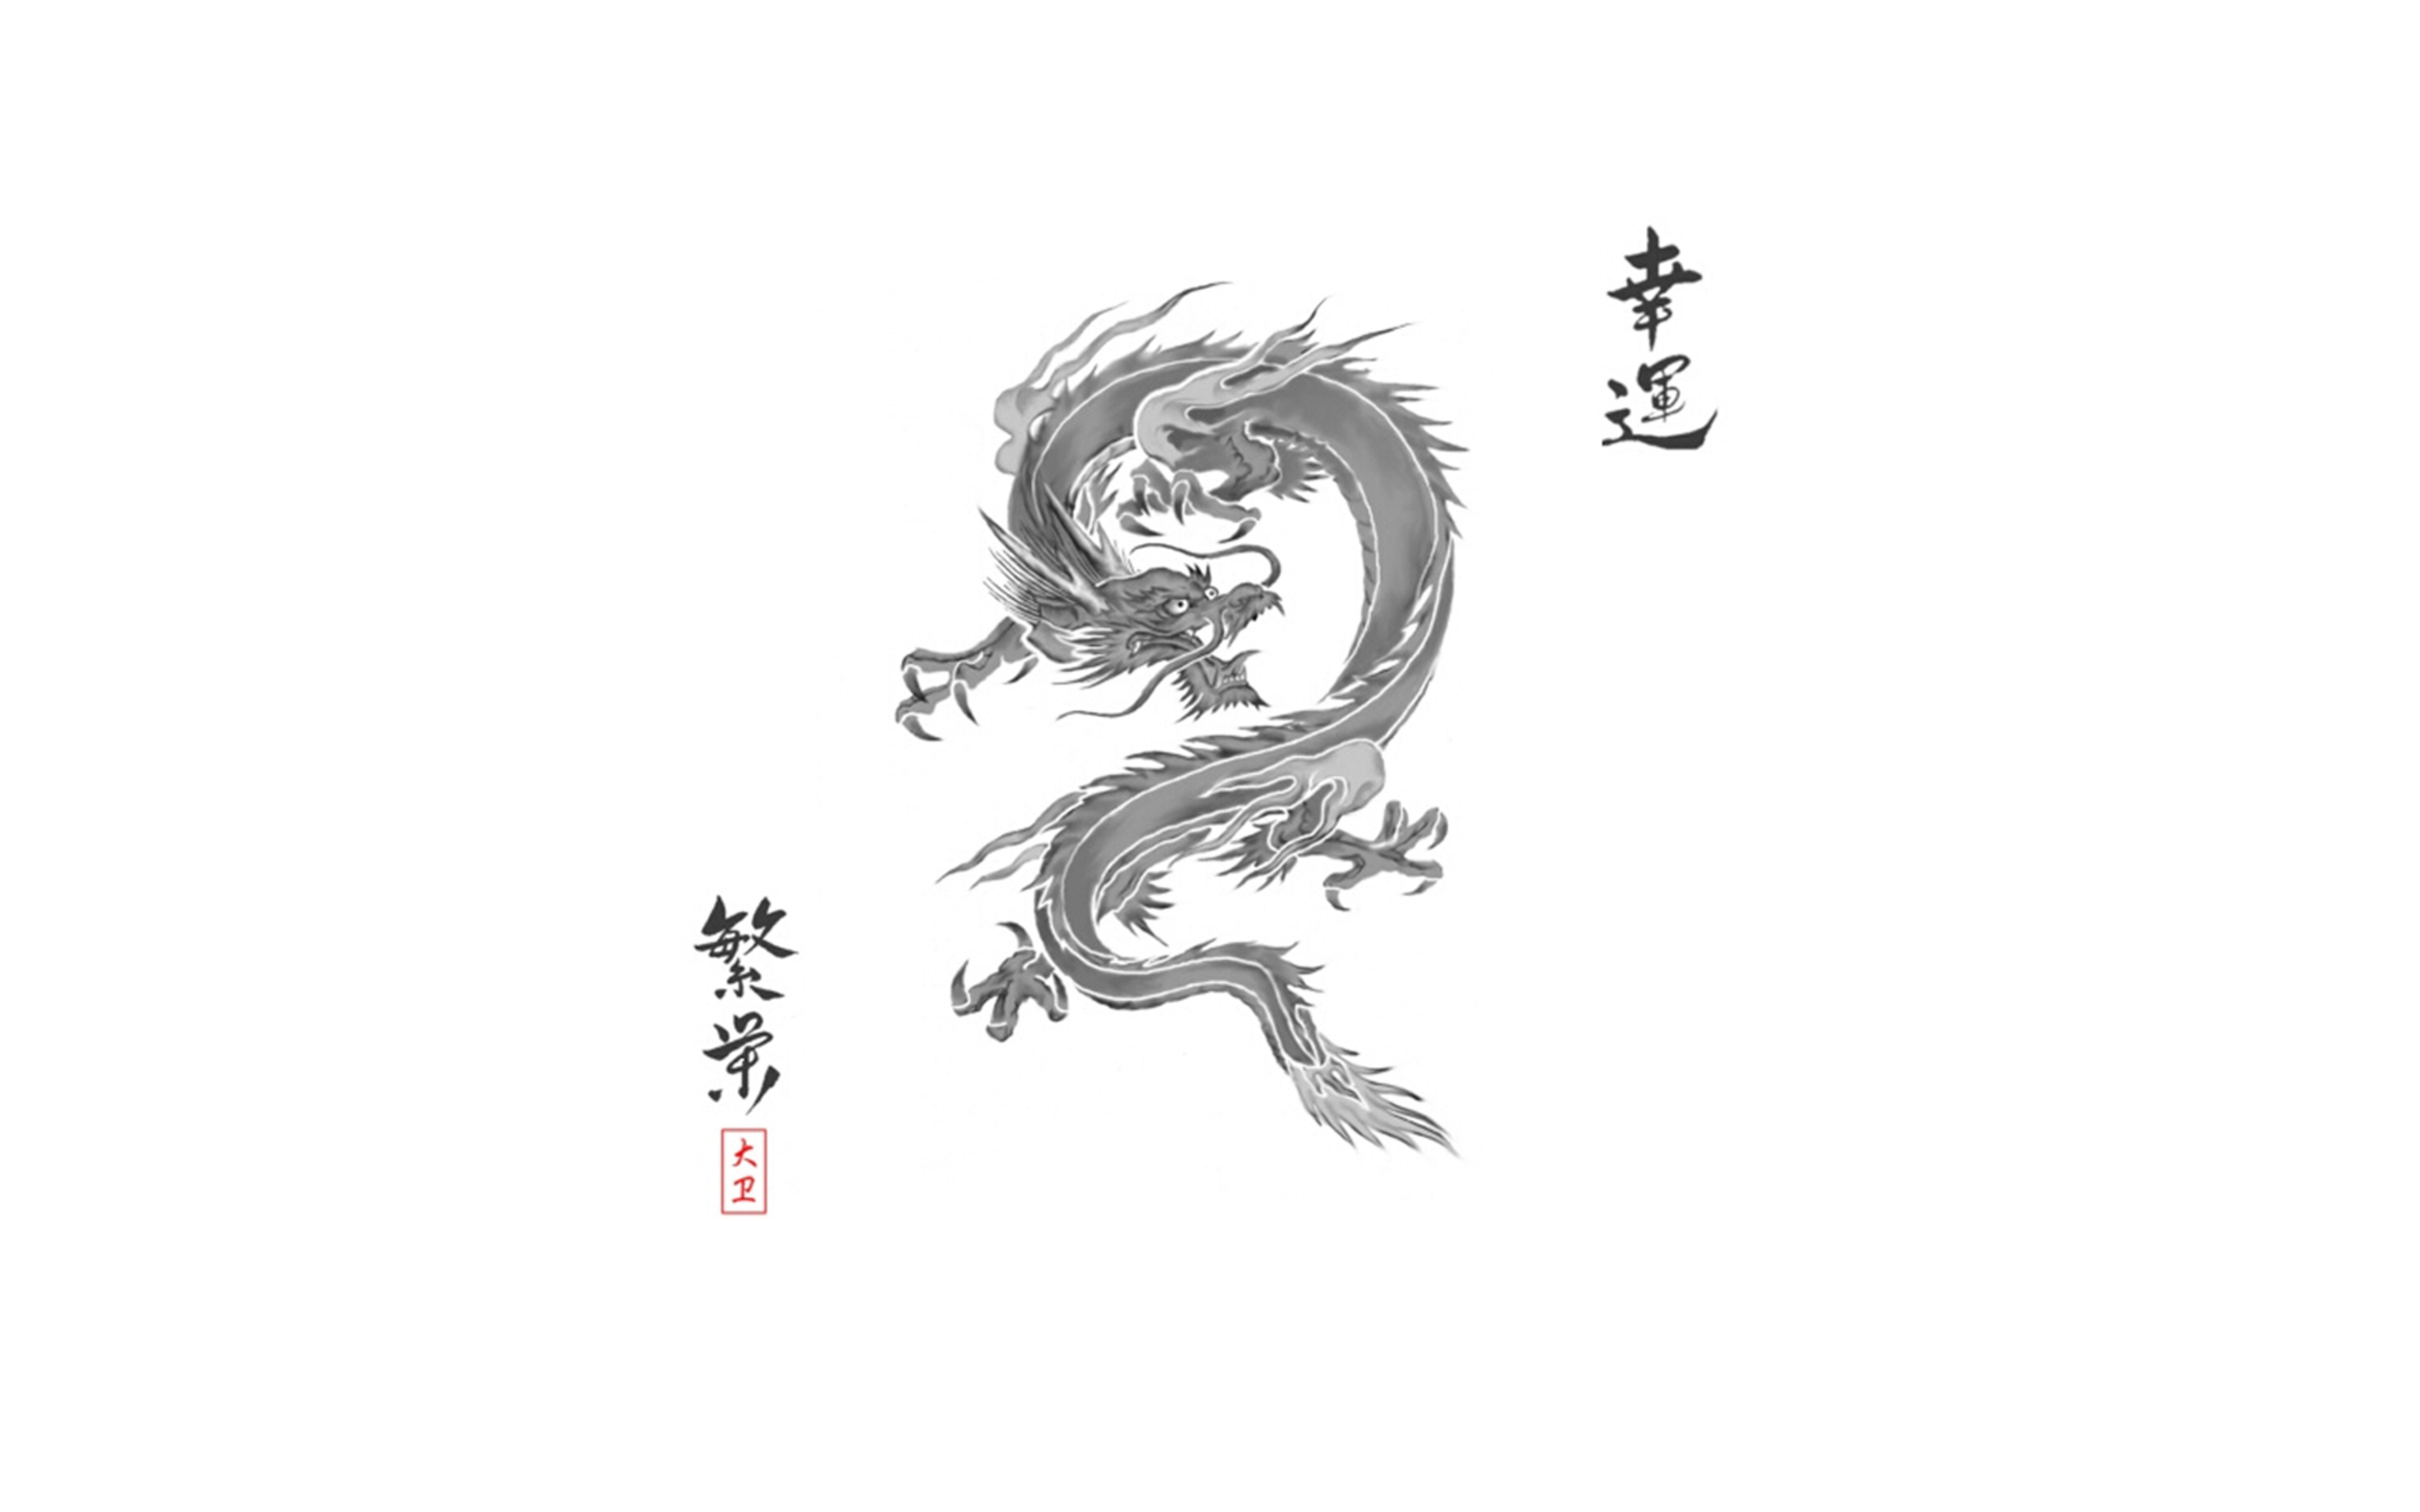 幸運
繁栄
大卫